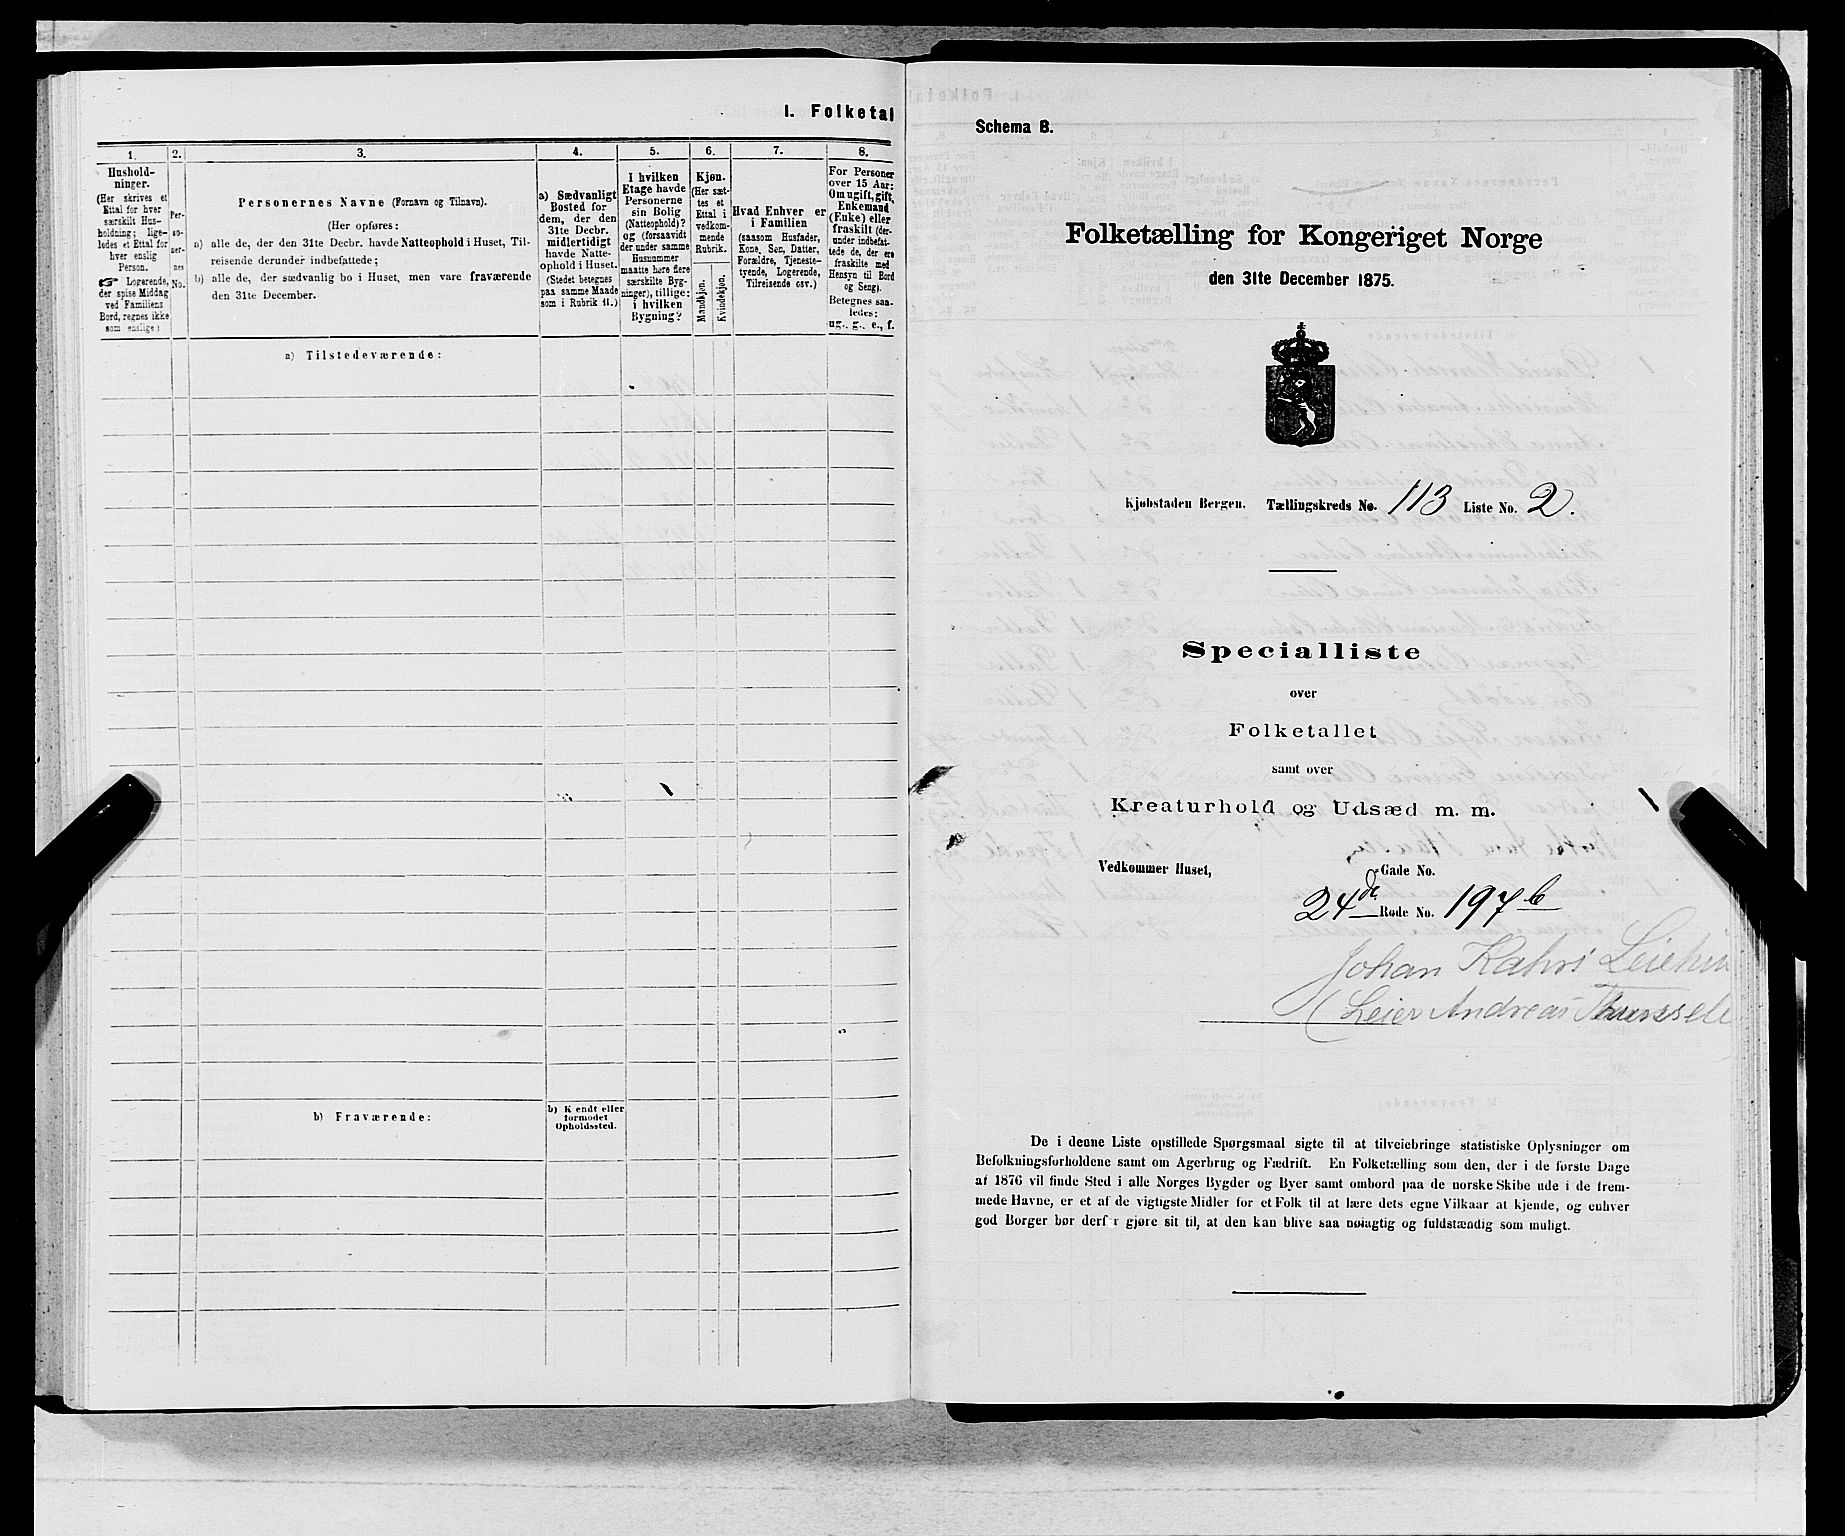 I. Folketal
1.
2.
3.
4.
5.
6.
7.
8.
Hushold-
ninger.
(Her skrives et
Ettal for hver
særskilt Hus-
holdning; lige-
ledes et Ettal for
hver enslig
Person.
☞ Logerende,
der spise Middag
ved Familiens
Bord, regnes ikke
som enslige)
Per-
so-
ner-
nes
No.
Personernes Navne (Fornavn og Tilnavn).
(Her opføres:
a) alle de, der den 31te Decbr. havde Natteophold i Huset, Til-
reisende derunder indbefattede;
b) alle de, der sædvanlig bo i Huset, men vare fraværende
den 31te December.
a) Sædvanligt
Bosted for
dem, der den
31te Decbr.
midlertidigt
havde Natte-
ophold i Huset.
(Stedet betegnes
paa samme Maade
som i Rubrik 11.)
I hvilken
Etage havde
Personerne
sin Bolig
(Natteophold)?
og (forsaavidt
der under samme
Husnummer
maatte høre flere
særskilte Byg-
ninger), tillige:
i hvilken
Bygning?
Kjøn.
(Her sæt-
tes et
Ettal i
vedkom-
mende
Rubrik.
Mandkjøn.
Kvindekjøn.
Hvad Enhver er
i Familien
(saasom Husfader,
Kone, Søn, Datter,
Forældre, Tjeneste-
tyende, Logerende,
Tilreisende osv.)
For Personer
over 15 Aar:
Om ugift, gift,
Enkemand
(Enke) eller
fraskilt (der-
under indbefat-
tede de, der ere
fraskilte med
Hensyn til Bord
og Seng).
Betegnes saa-
ledes:
ug., g., e., f.
a) Tilstedeværende:
b) Fraværende:
b) Kjendt eller
formodet
Opholdssted.
Schema B.
Folketælling for Kongeriget Norge
den 31te December 1875.
Kjøbstaden Bergen. Tællingskreds No. 113 Liste No. 2.
Specialliste
over
Folketallet
samt over
Kreaturhold og Udsæd m. m.
Vedkommer Huset, Gade No.
24de Rode No. 197b
Johan Kahrs
(Leier Andreas
De i denne Liste opstillede Spørgsmaal sigte til at tilveiebringe statistiske Oplysninger om
Befolkningsforholdene samt om Agerbrug og Fædrift. En Folketælling som den, der i de første Dage
af 1876 vil finde Sted i alle Norges Bygder og Byer samt ombord paa de norske Skibe ude i de frem-
mede Havne, er et af de vigtigste Midler for et Folk til at lære dets egne Vilkaar at kjende, og enhver
god Borger bør derfor gjøre sit til, at den kan blive saa nøiagtig og fuldstændig som muligt.